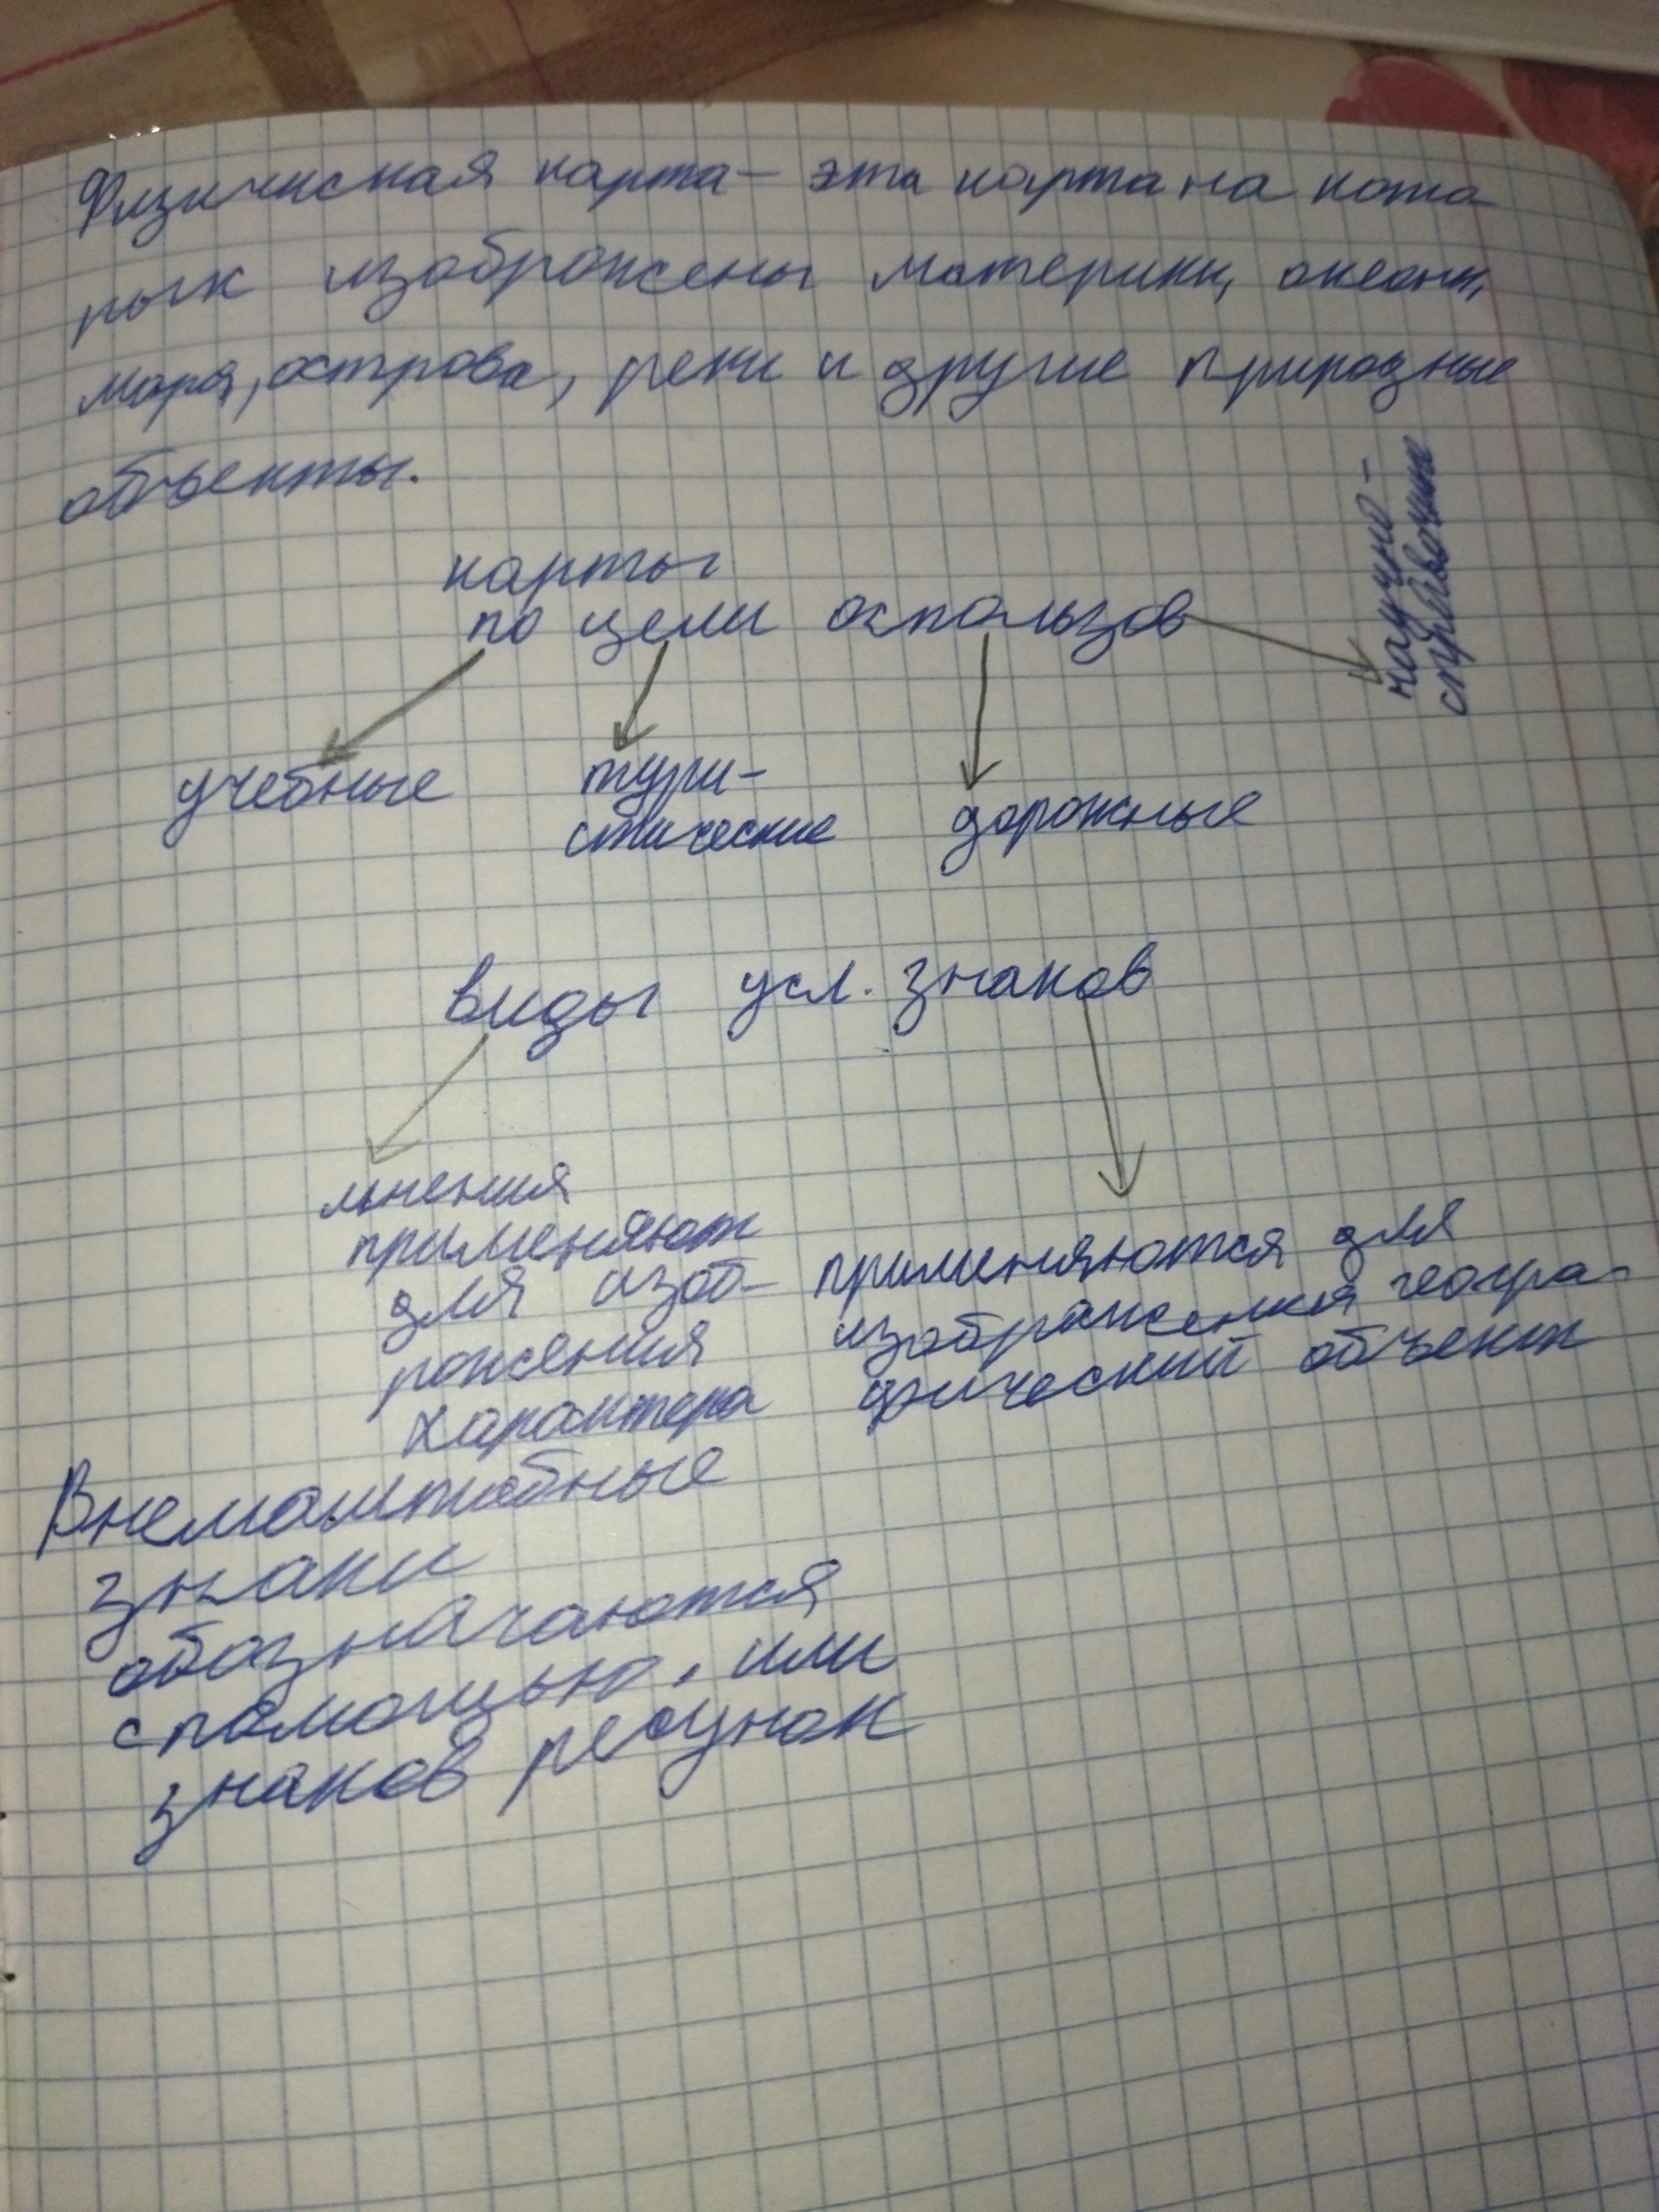 Физичиская карта - эта карта на кота
рых изображены материки, океаны,
моря, острова, реки и другие природные
объекты.
карты
по цели
научно-
справочные
учебные
тури-
стические
дорожные
виды усл. знаков
применяют
для изоб-
ражения
характера
применяются для
изображения геогра-
фический объект
Внемаштабные
знаки
обозначаются
с помощью. или
знаков ресунок